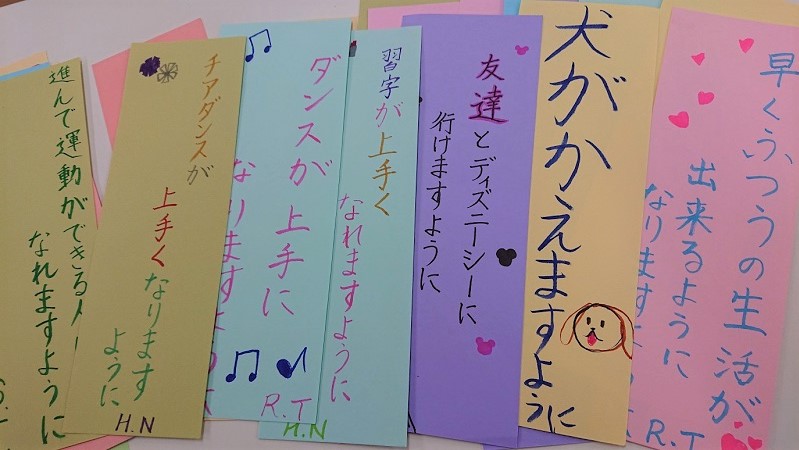 早くふつうの生活が
出来るように
なりますように
R.T
犬がかえますように
友達とディズニーシーに
行けますように
習字が上手く
なれますように
H.N
ダンスが上手に
なりますように
R.T
チアダンスが
上手くなります
ように
H.N
進んで運動ができる人に
なれますように